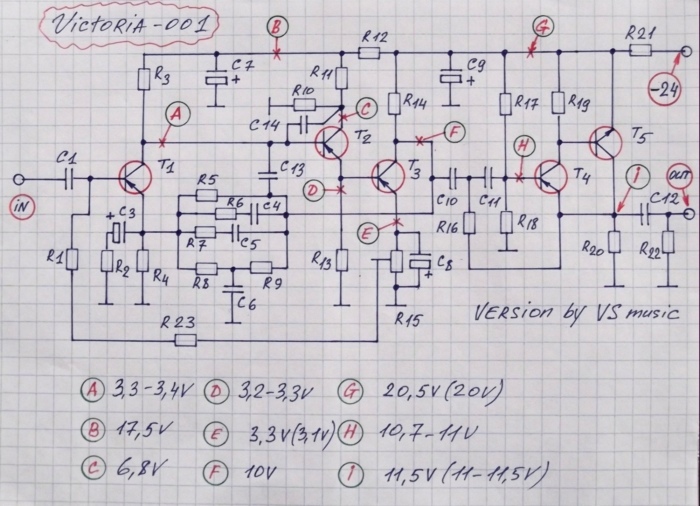 VictoRiA-001
B
G
R12
R21
R3
C7
+
R11
C9
+
-24
R10
R14
R17
R19
A
C14
C
F
T2
T5
C1
T1
H
C13
T3
T4
D
R5
i
OUT
iN
C3
+
R6
C4
C10
C11
C12
R7
C5
E
R16
R18
R1
R2
R4
R8
R9
R13
C8
+
R20
R22
C6
R15
R23
VERsion by VS music
A 3,3-3,4V D 3,2-3,3V G 20,5V (20V)
B 17,5V E 3,3V(3,1V) H 10,7-11V
C 6,8V F 10V i 11,5V (11-11,5V)